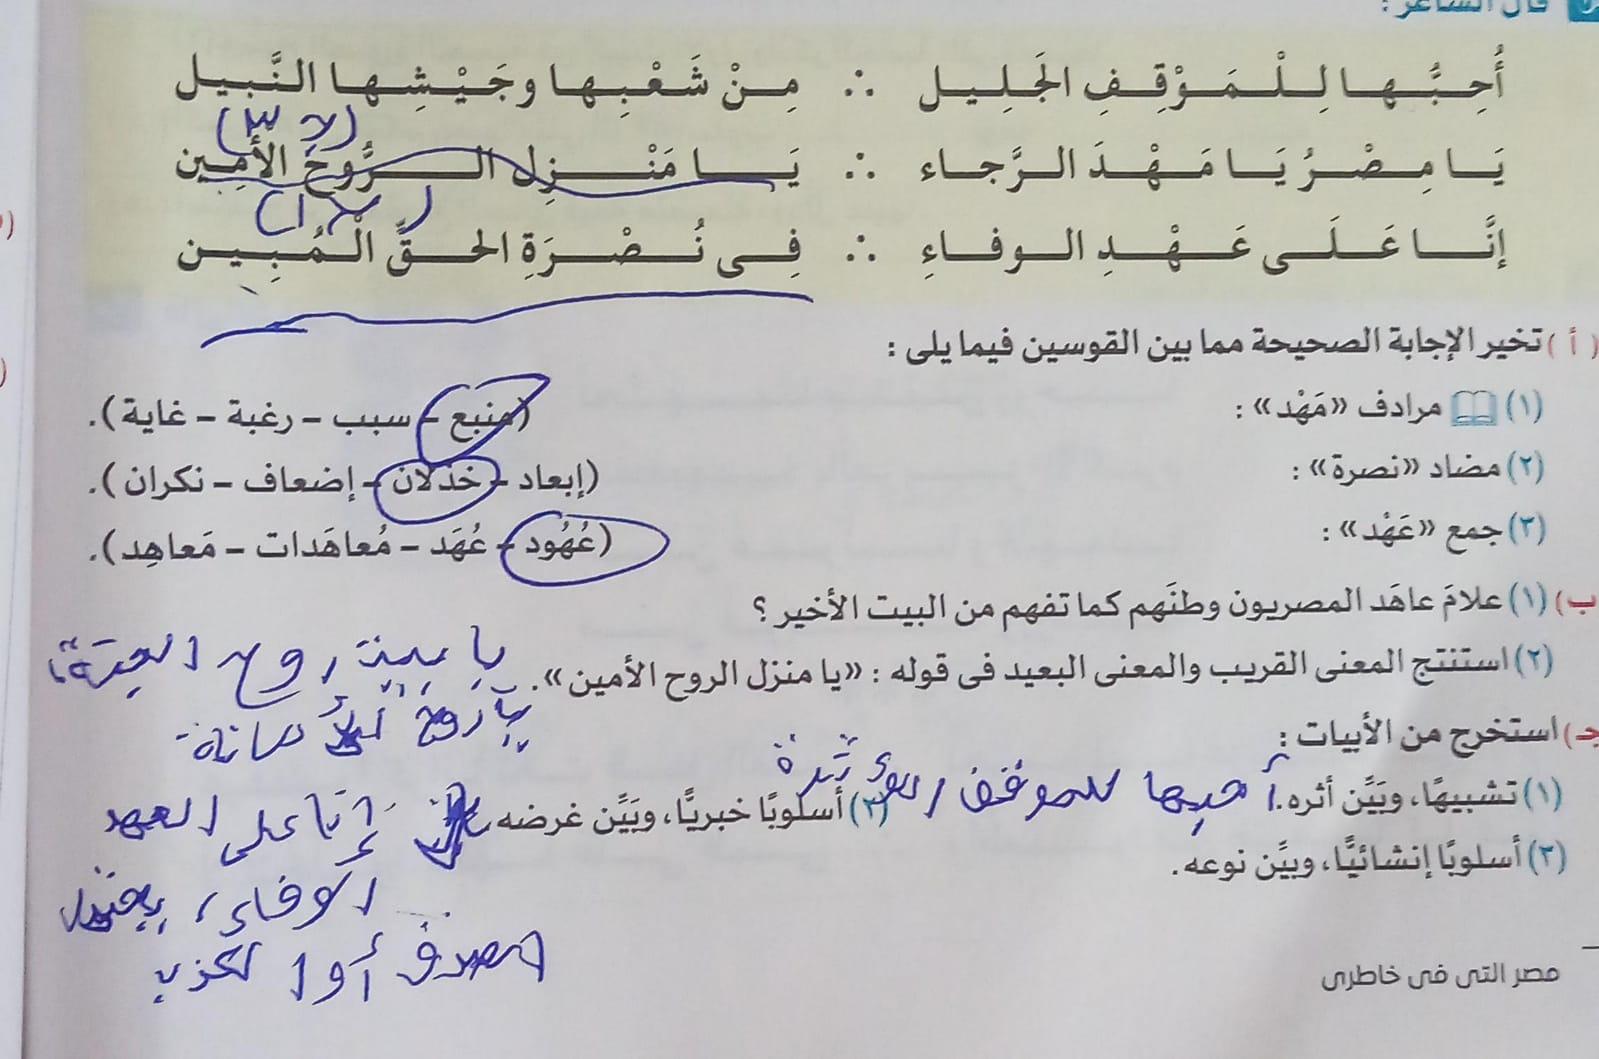 قال الشاعر :
أُحِبُّها لِلْمَوْقِفِ الجَلِيل ∴ مِنْ شَعْبِها وجَيْشِها النَّبيل
يَا مِصْرُ يَا مَهْدَ الرَّجاء ∴ يَا مَنْزِل الرُّوحُ الأمِين
إنَّا عَلَى عَهْدِ الوفاءِ ∴ فِى نُصْرَةِ الحقِّ الْمُبِين
( أ ) تخير الإجابة الصحيحة مما بين القوسين فيما يلى :
(١) مرادف «مَهْد» : (منبع – سبب – رغبة – غاية).
(٢) مضاد «نصرة» : (إبعاد – خذلان – إضعاف – نكران).
(٣) جمع «عَهْد» : (عُهُود – عُهَد – مُعاهَدات – مَعاهِد).
(ب) (١) علامَ عاهَد المصريون وطنَهم كما تفهم من البيت الأخير ؟
(٢) استنتج المعنى القريب والمعنى البعيد فى قوله : «يا منزل الروح الأمين».
يا روح الأمانة
(جـ) استخرج من الأبيات :
(١) تشبيهًا، وبَيِّن أثره. أحبها للموقف
(٢) أسلوبًا خبريًّا، وبَيِّن غرضه. إنا على العهد
(٣) أسلوبًا إنشائيًّا، وبيِّن نوعه.
الوفاء،
الصدق أو الكذب
مصر التى فى خاطرى